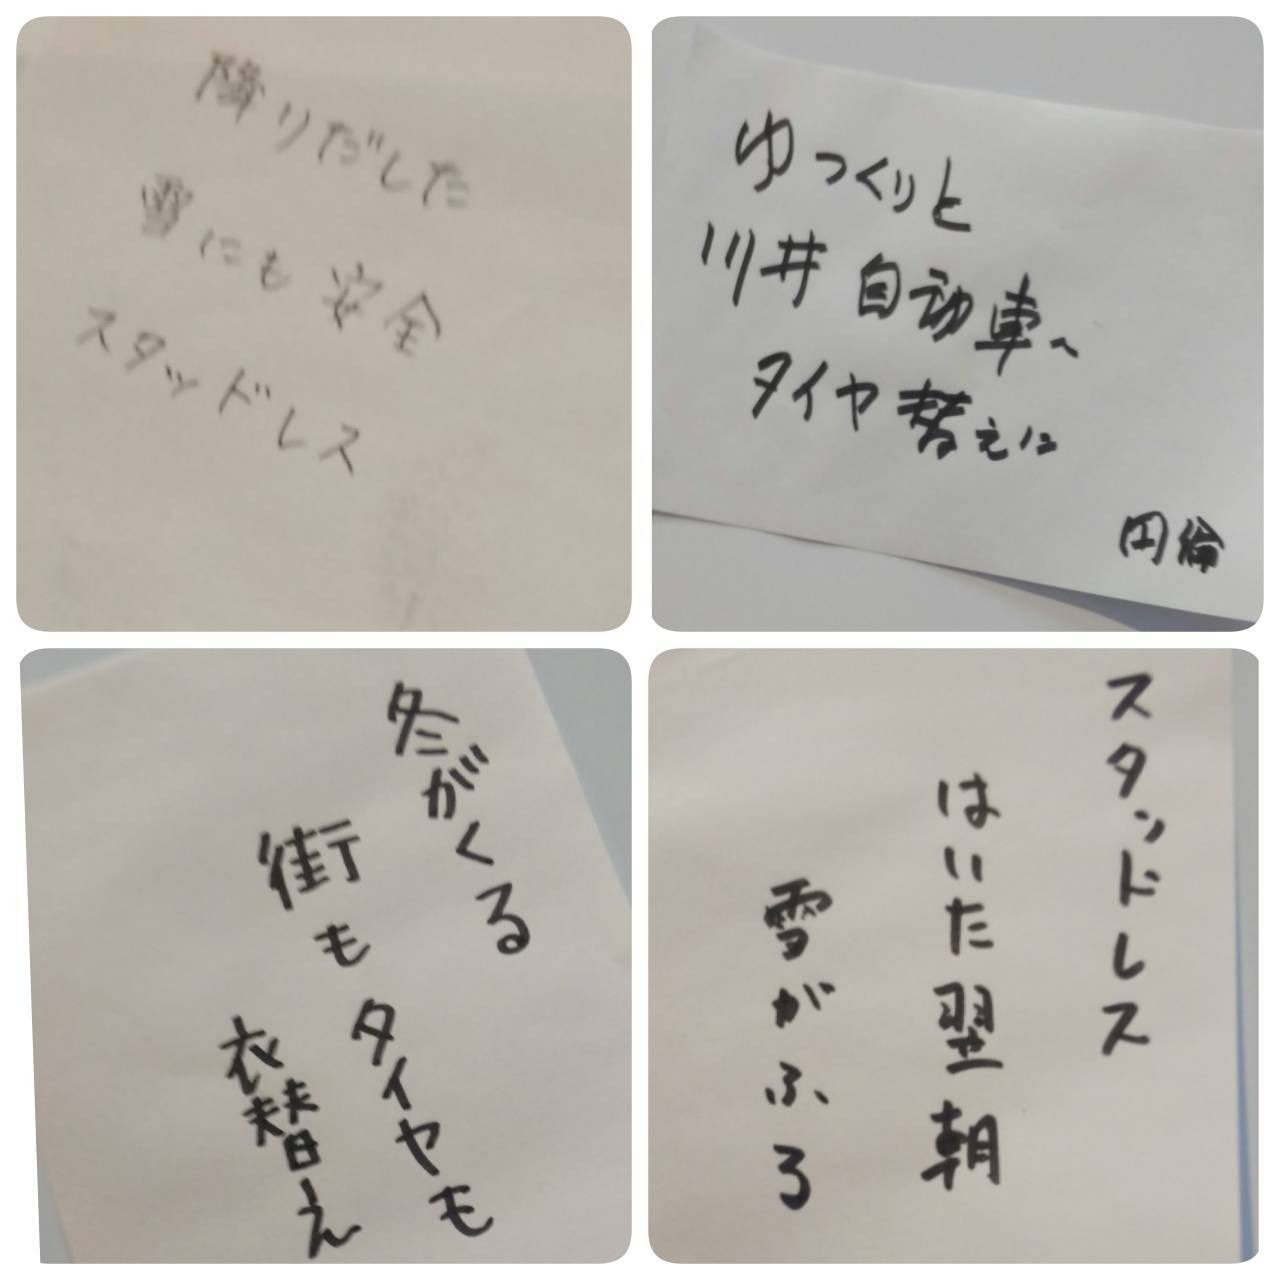 降りだした
雪にも安全
スタッドレス
ゆっくりと
川井自動車へ
タイヤ替えに
円倫
冬がくる
街もタイヤも
衣替え
スタッドレス
はいた翌朝
雪がふる